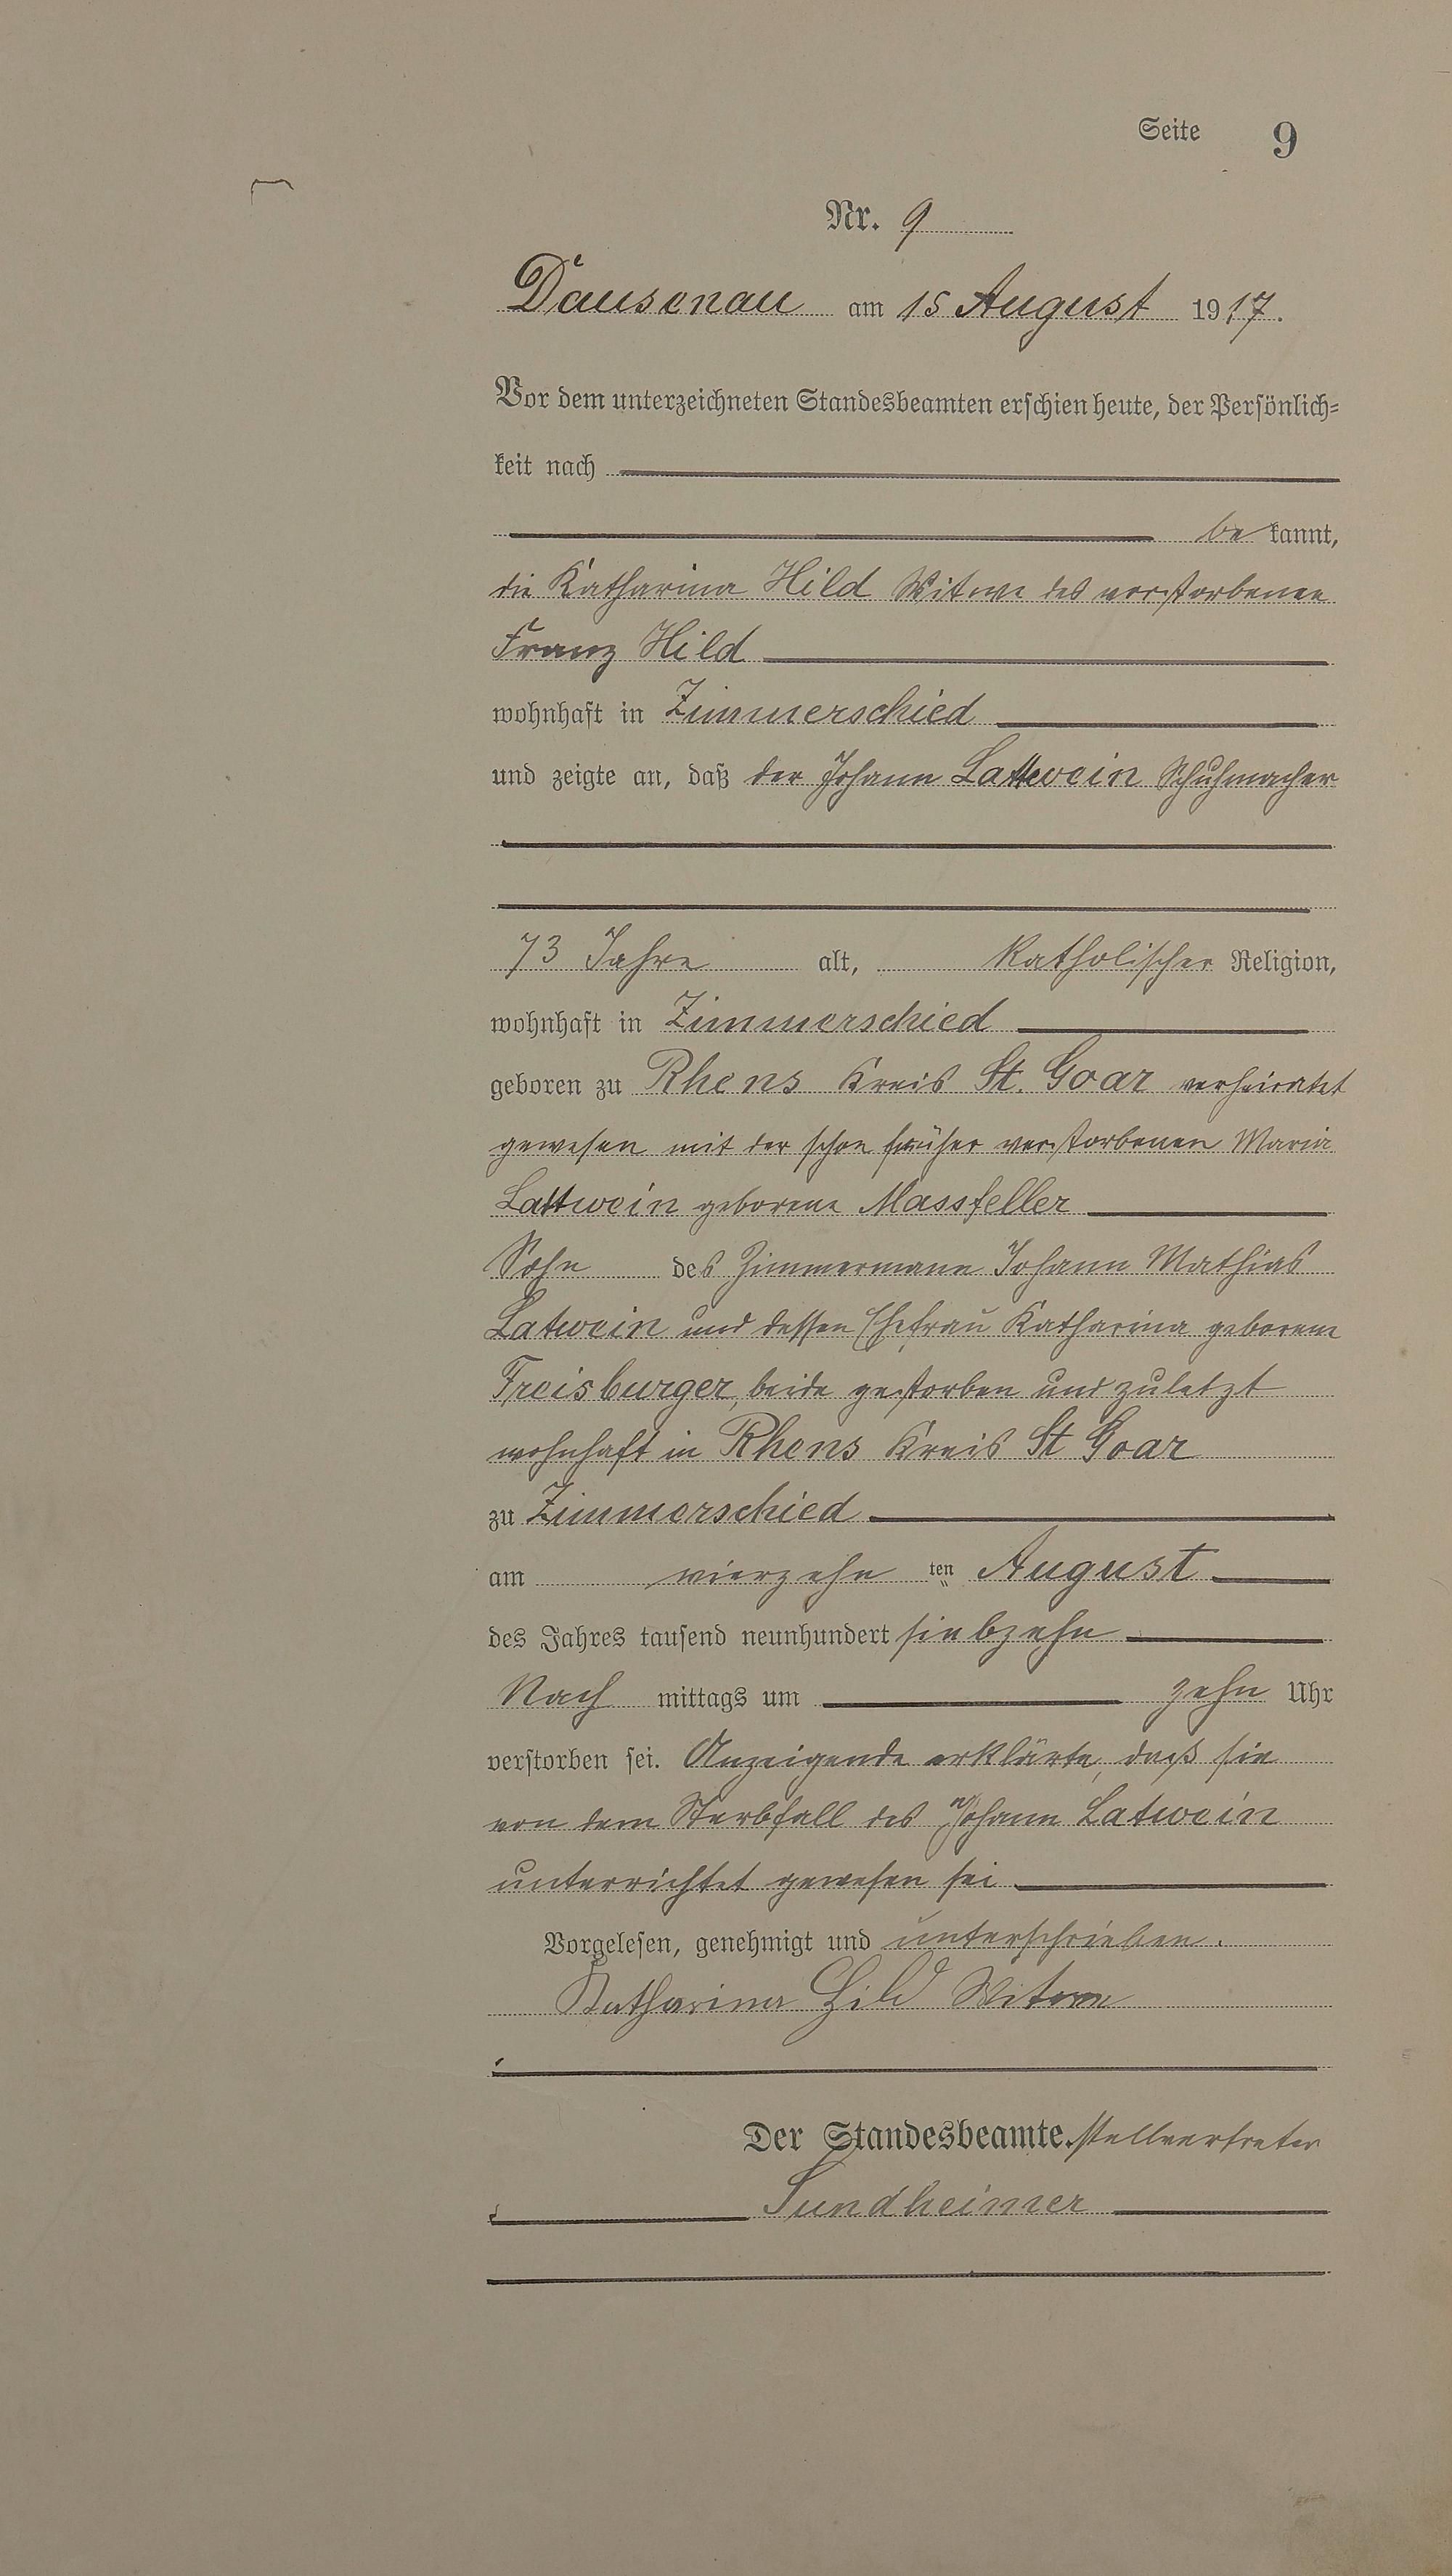 Seite 9
Nr. 9
Dausenau am 15 August 1917.
Vor dem unterzeichneten Standesbeamten erschien heute, der Persönlich-
keit nach
be kannt,
die Katharina Hild Witwe des verstorbenen
Franz Hild
wohnhaft in Zimmerschied
und zeigte an, daß der Johann Lattwein Schuhmacher
73 Jahre alt, katholischer Religion,
wohnhaft in Zimmerschied
geboren zu Rhens Kreis St. Goar verheiratet
gewesen mit der schon früher verstorbenen Maria
Lattwein geborene Massfeller
Sohn des Zimmermann Johann Mathias
Latwein und dessen Ehefrau Katharina geborene
Freisburger, beide gestorben und zuletzt
wohnhaft in Rhens Kreis St Goar
zu Zimmerschied
am vierzehn ten August
des Jahres tausend neunhundert siebzehn
Nach mittags um zehn Uhr
verstorben sei. Anzeigende erklärte, daß sie
von dem Sterbfall des Johann Latwein
unterrichtet gewesen sei
Vorgelesen, genehmigt und unterschrieben.
Katharina Hild Witwe
Der Standesbeamte. stellvertreter
Sundheimer